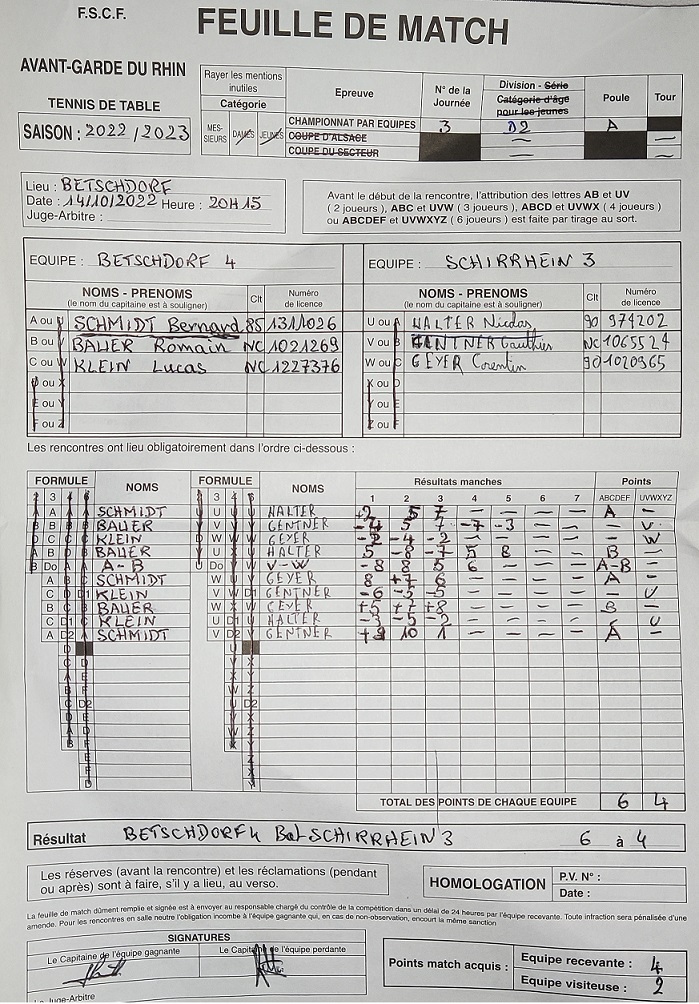 F.S.C.F.
FEUILLE DE MATCH
AVANT-GARDE DU RHIN
TENNIS DE TABLE
SAISON : 2022/2023
Rayer les mentions inutiles
Catégorie
MESSIEURS DAMES JEUNES
Epreuve
CHAMPIONNAT PAR EQUIPES
COUPE D'ALSACE
COUPE DU SECTEUR
N° de la Journée
3
Division - Série
Catégorie d'âge
pour les jeunes
D2
—
—
Poule
A
Tour
—
—
Lieu : BETSCHDORF
Date : 14/10/2022 Heure : 20H15
Juge-Arbitre :
Avant le début de la rencontre, l'attribution des lettres AB et UV
( 2 joueurs ), ABC et UVW ( 3 joueurs ), ABCD et UVWX ( 4 joueurs )
ou ABCDEF et UVWXYZ ( 6 joueurs ) est faite par tirage au sort.
EQUIPE : BETSCHDORF 4
EQUIPE : SCHIRRHEIN 3
NOMS - PRENOMS Clt Numéro
(le nom du capitaine est à souligner) de licence
NOMS - PRENOMS Clt Numéro
(le nom du capitaine est à souligner) de licence
A ou U SCHMIDT Bernard 85 1311026
B ou V BAUER Romain NC 1021269
C ou W KLEIN Lucas NC 1227376
D ou X
E ou Y
F ou Z
U ou A HALTER Nicolas 90 974202
V ou B GENTNER Gauthier NC 1065524
W ou C GEYER Corentin 90 1020965
X ou D
Y ou E
Z ou F
Les rencontres ont lieu obligatoirement dans l'ordre ci-dessous :
FORMULE NOMS FORMULE NOMS Résultats manches Points
2 3 4 6 2 3 4 6 1 2 3 4 5 6 7 ABCDEF UVWXYZ
A SCHMIDT U HALTER +2 5 7 — — — — A —
B BAUER V GENTNER -4 5 7 -7 -3 — — — V
C KLEIN W GEYER -2 -4 -2 — — — — — W
B BAUER U HALTER 5 -8 -7 5 8 — — B —
Do A-B Do V-W -8 8 5 6 — — — A-B —
A SCHMIDT W GEYER 8 +7 6 — — — — A —
C KLEIN V GENTNER -6 -5 -5 — — — — — U
B BAUER W GEYER +5 +7 +8 — — — — B —
C KLEIN U HALTER -3 -5 -2 — — — — — U
A SCHMIDT V GENTNER +9 10 1 — — — — A —
TOTAL DES POINTS DE CHAQUE EQUIPE 6 4
Résultat BETSCHDORF 4 Bat SCHIRRHEIN 3 6 à 4
Les réserves (avant la rencontre) et les réclamations (pendant
ou après) sont à faire, s'il y a lieu, au verso.
HOMOLOGATION
P.V. N° :
Date :
La feuille de match dûment remplie et signée est à envoyer au responsable chargé du contrôle de la compétition dans un délai de 24 heures par l'équipe recevante. Toute infraction sera pénalisée d'une
amende. Pour les rencontres en salle neutre l'obligation incombe à l'équipe gagnante qui, en cas de non-observation, encourt la même sanction
SIGNATURES
Le Capitaine de l'équipe gagnante
Le Capitaine de l'équipe perdante
Points match acquis :
Equipe recevante : 4
Equipe visiteuse : 2
Le Juge-Arbitre